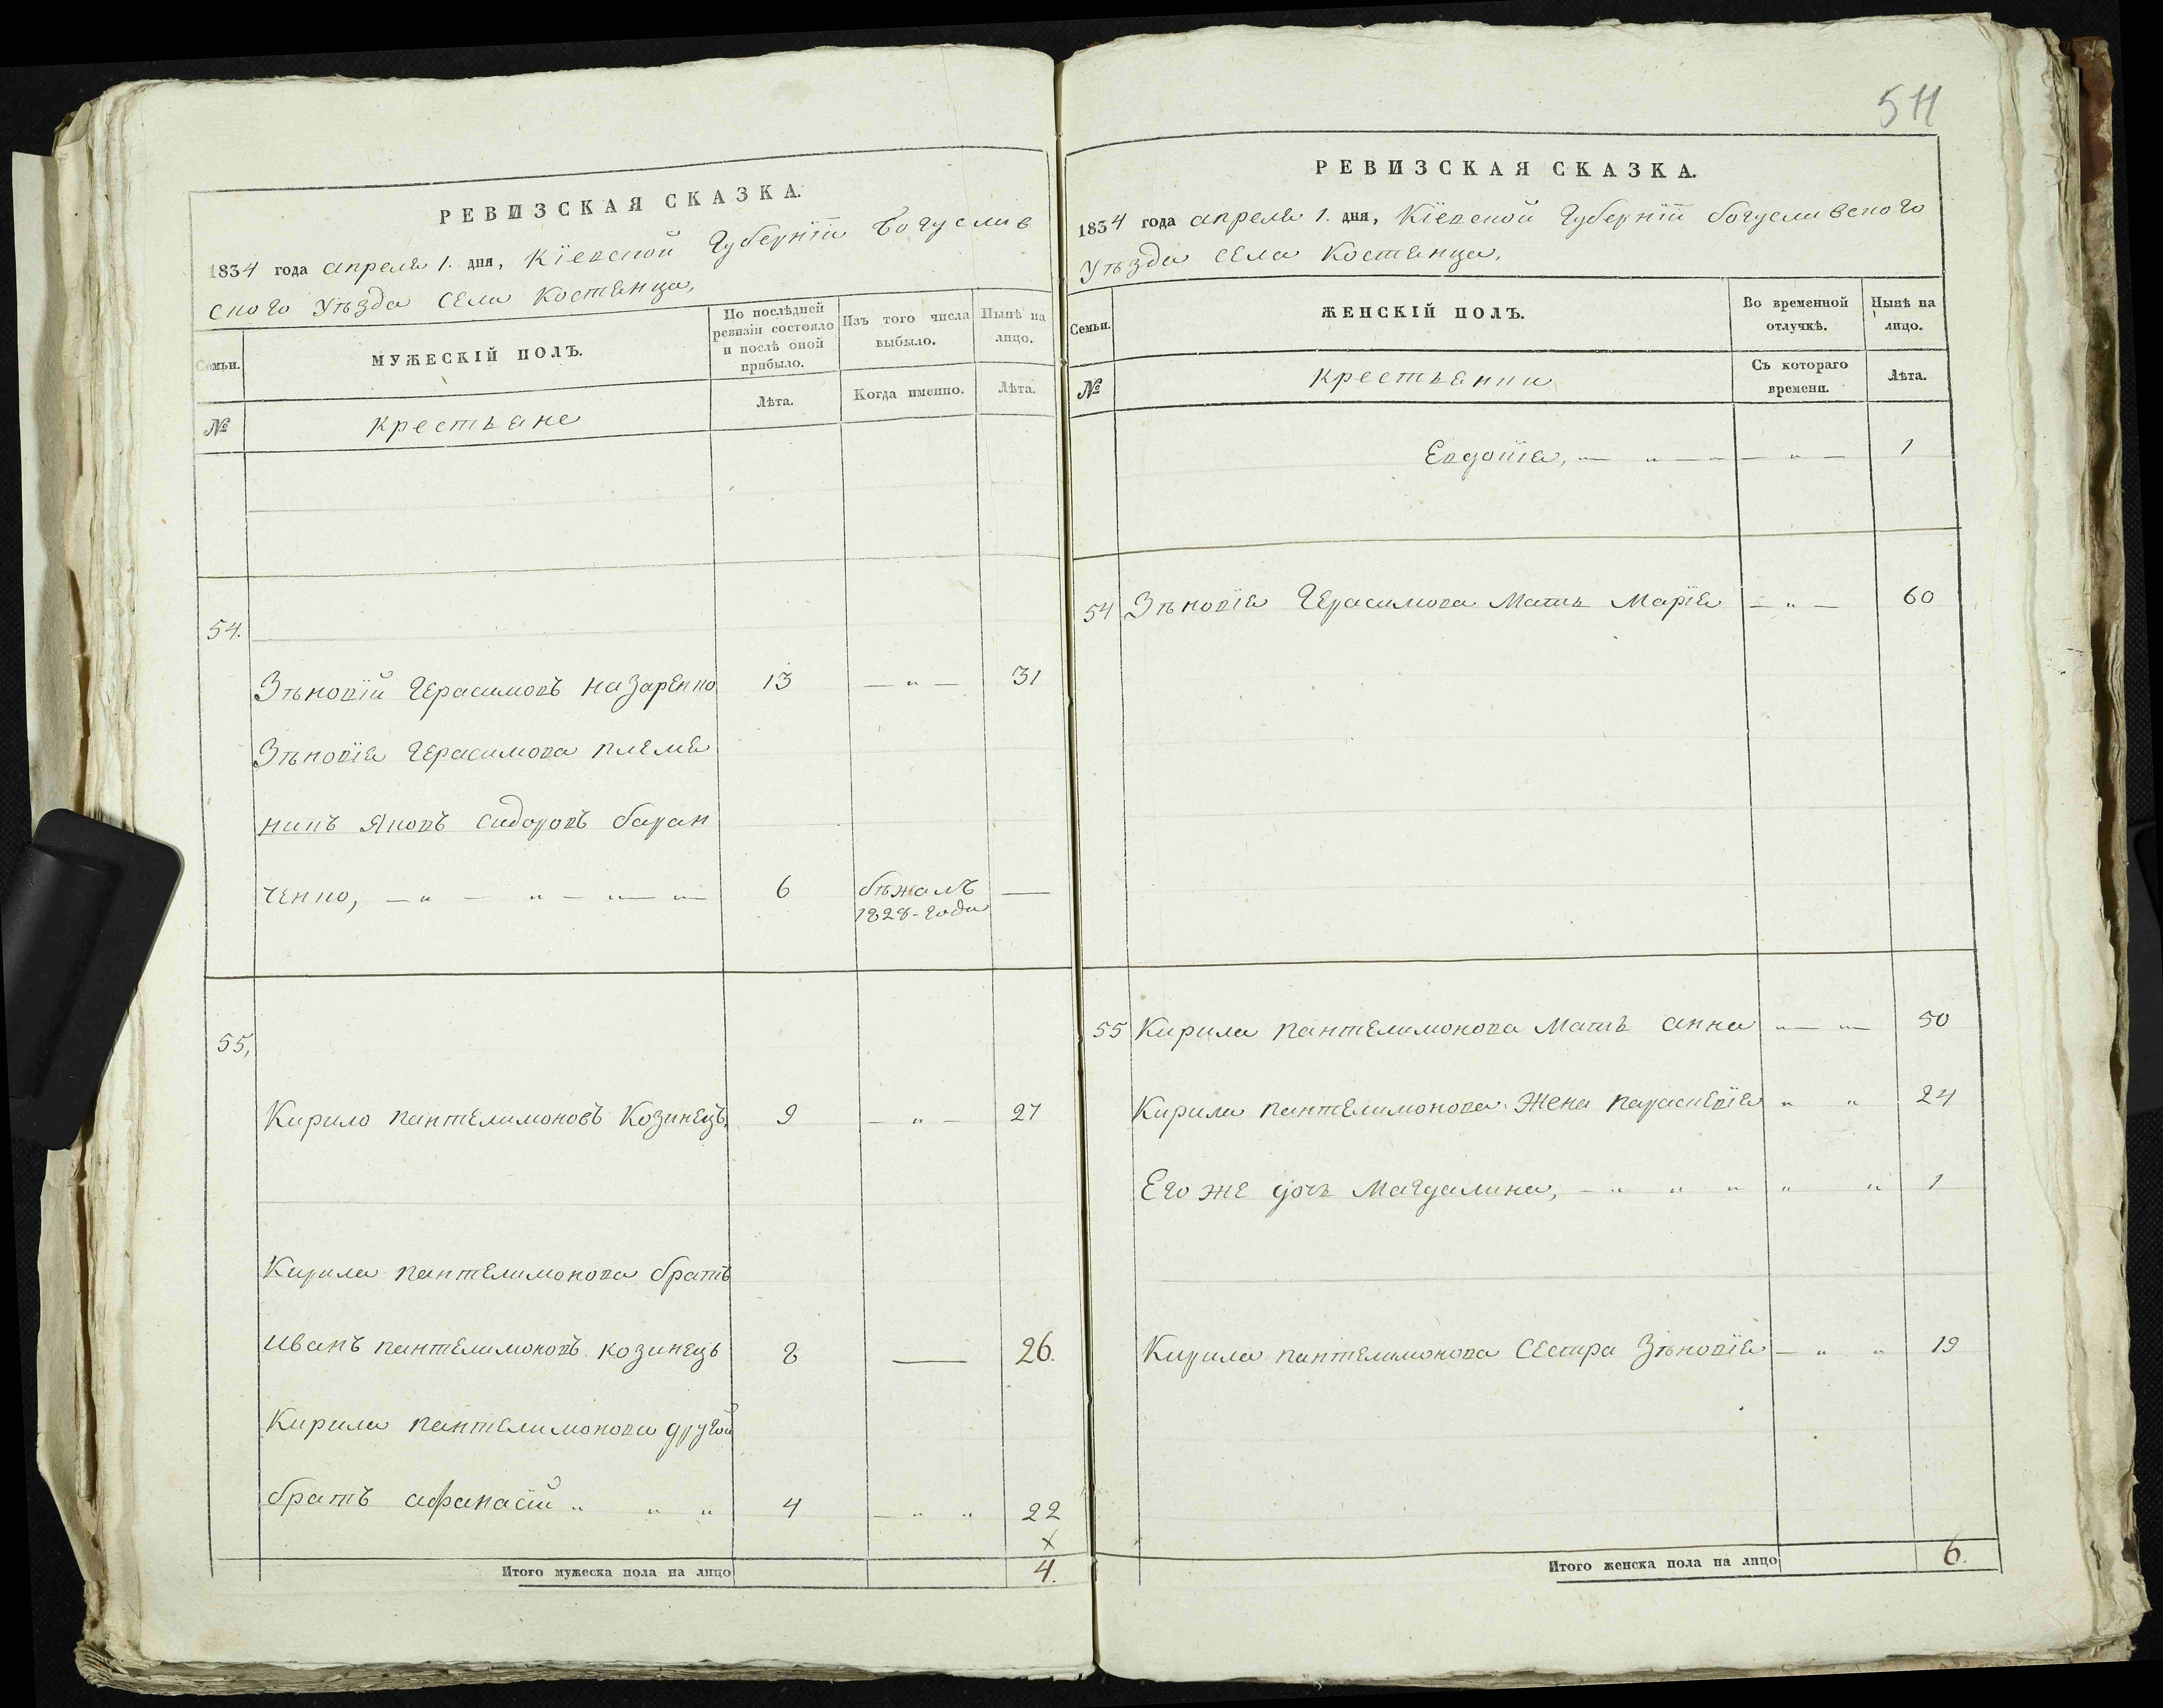 РЕВИЗСКАЯ СКАЗКА.
1834 года апреля 1. дня, Кіевской Губерніи Богуслав
ского Уѣзда села Костянца,
Семьи.
МУЖЕСКІЙ ПОЛЪ.
По послѣдней
ревизіи состояло
и послѣ оной
прибыло.
Изъ того числа
выбыло.
Нынѣ на
лицо.
№
крестьяне
Лѣта.
Когда именно.
Лѣта.
54.
Зѣновій Герасимовъ Назаренко 13 — " — 31
Зѣновія Герасимова племя
никъ Яковъ Сидоровъ баран
ченко, — " — " — " — " — 6 бѣжалъ —
1828-года
55,
Кирило пантелимоновъ Козинецъ, 9 — " — 27
Кирила пантелимонова братъ
иванъ пантелимоновъ козинецъ 8 — 26.
Кирила пантелимонова другой
братъ афанасій " " " 4 — " " 22
x
Итого мужеска пола на лицо 4.
511
РЕВИЗСКАЯ СКАЗКА.
1834 года апреля 1. дня, Кіевской Губерніи богуславского
Уѣзда села Костянца,
Семьи.
ЖЕНСКІЙ ПОЛЪ.
Во временной
отлучкѣ.
Нынѣ на
лицо.
№
крестьянки
Съ котораго
времени.
Лѣта.
Евдокія, — " — " — " — 1
54 Зѣновія Герасимова Мать Марія — " — 60
55 Кирила пантелимонова Мать анна " — " — 50
Кирила пантелимонова Жена параскевія " " 24
Его же дочь Магдалина, — " " " " " 1
Кирила пантелимонова Сестра Зѣновія — " " 19
Итого женска пола на лицо 6.